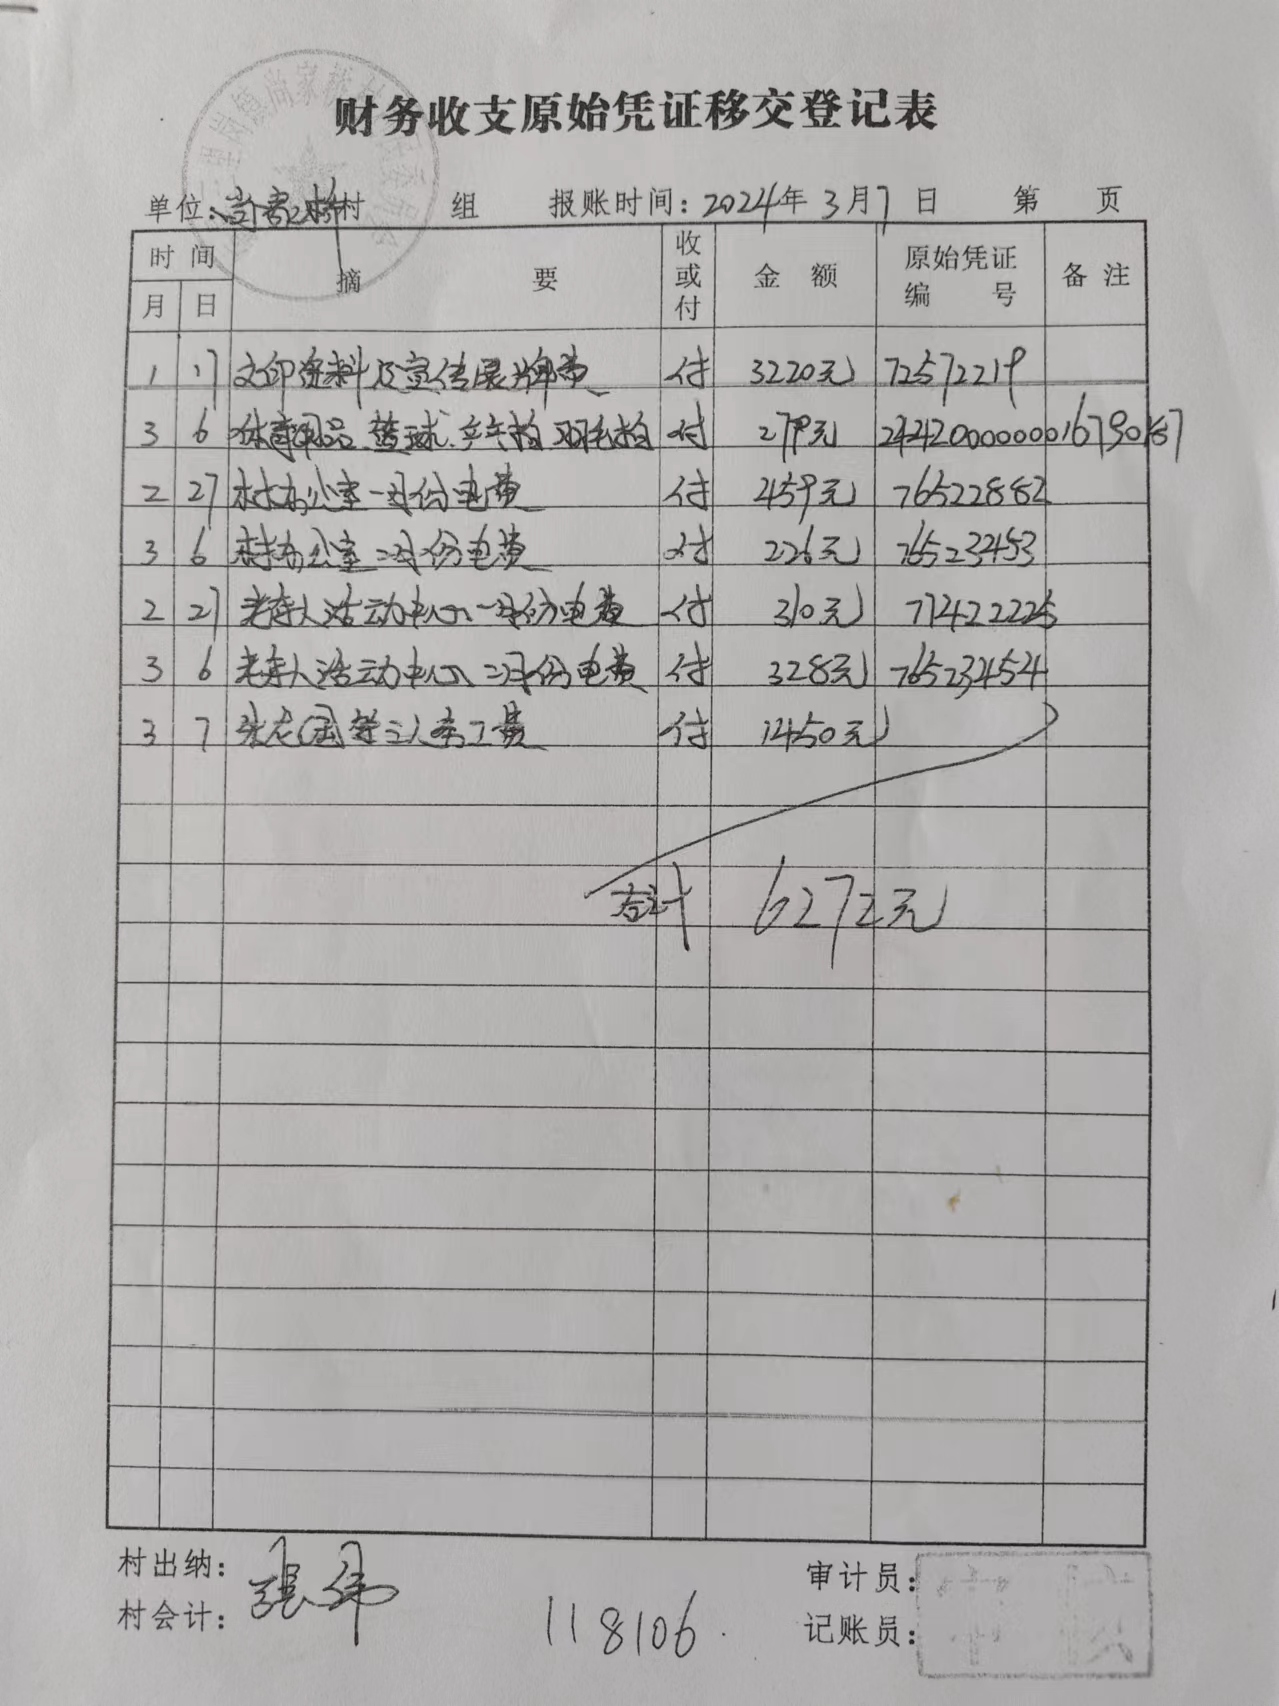 财务收支原始凭证移交登记表
单位：尚家桥村 组 报账时间：2024年3月7日 第 页
时间 摘要 收或付 金额 原始凭证编号 备注
月 日
1 17 文印资料及宣传展牌费 付 3220元 72572219
3 6 体育用品 篮球.乒乓拍.羽毛拍 付 279元 24420000000016790187
2 27 村办公室一月份电费 付 459元 76522882
3 6 村办公室二月份电费 付 226元 76523453
2 27 老年人活动中心一月份电费 付 310元 771422225
3 6 老年人活动中心二月份电费 付 328元 765232454
3 7 付 1450元
合计 6272元
村出纳：张伟
村会计：
118106.
审计员：
记账员：